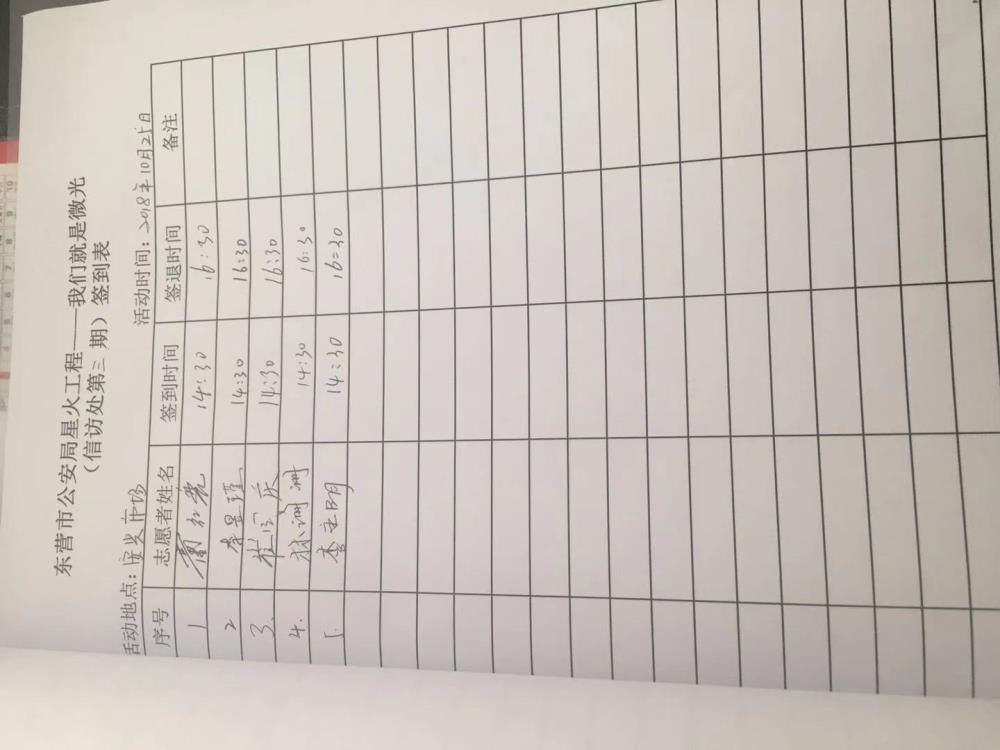 东营市公安局星火工程——我们就是微光
（信访处第三期）签到表
活动地点：安兴市场 活动时间：2018年10月25日
序号 志愿者姓名 签到时间 签退时间 备注
1 14:30 16:30
2 14:30 16:30
3、 崔国庆 14:30 16:30
4. 14:30 16:30
5. 14:30 16:30